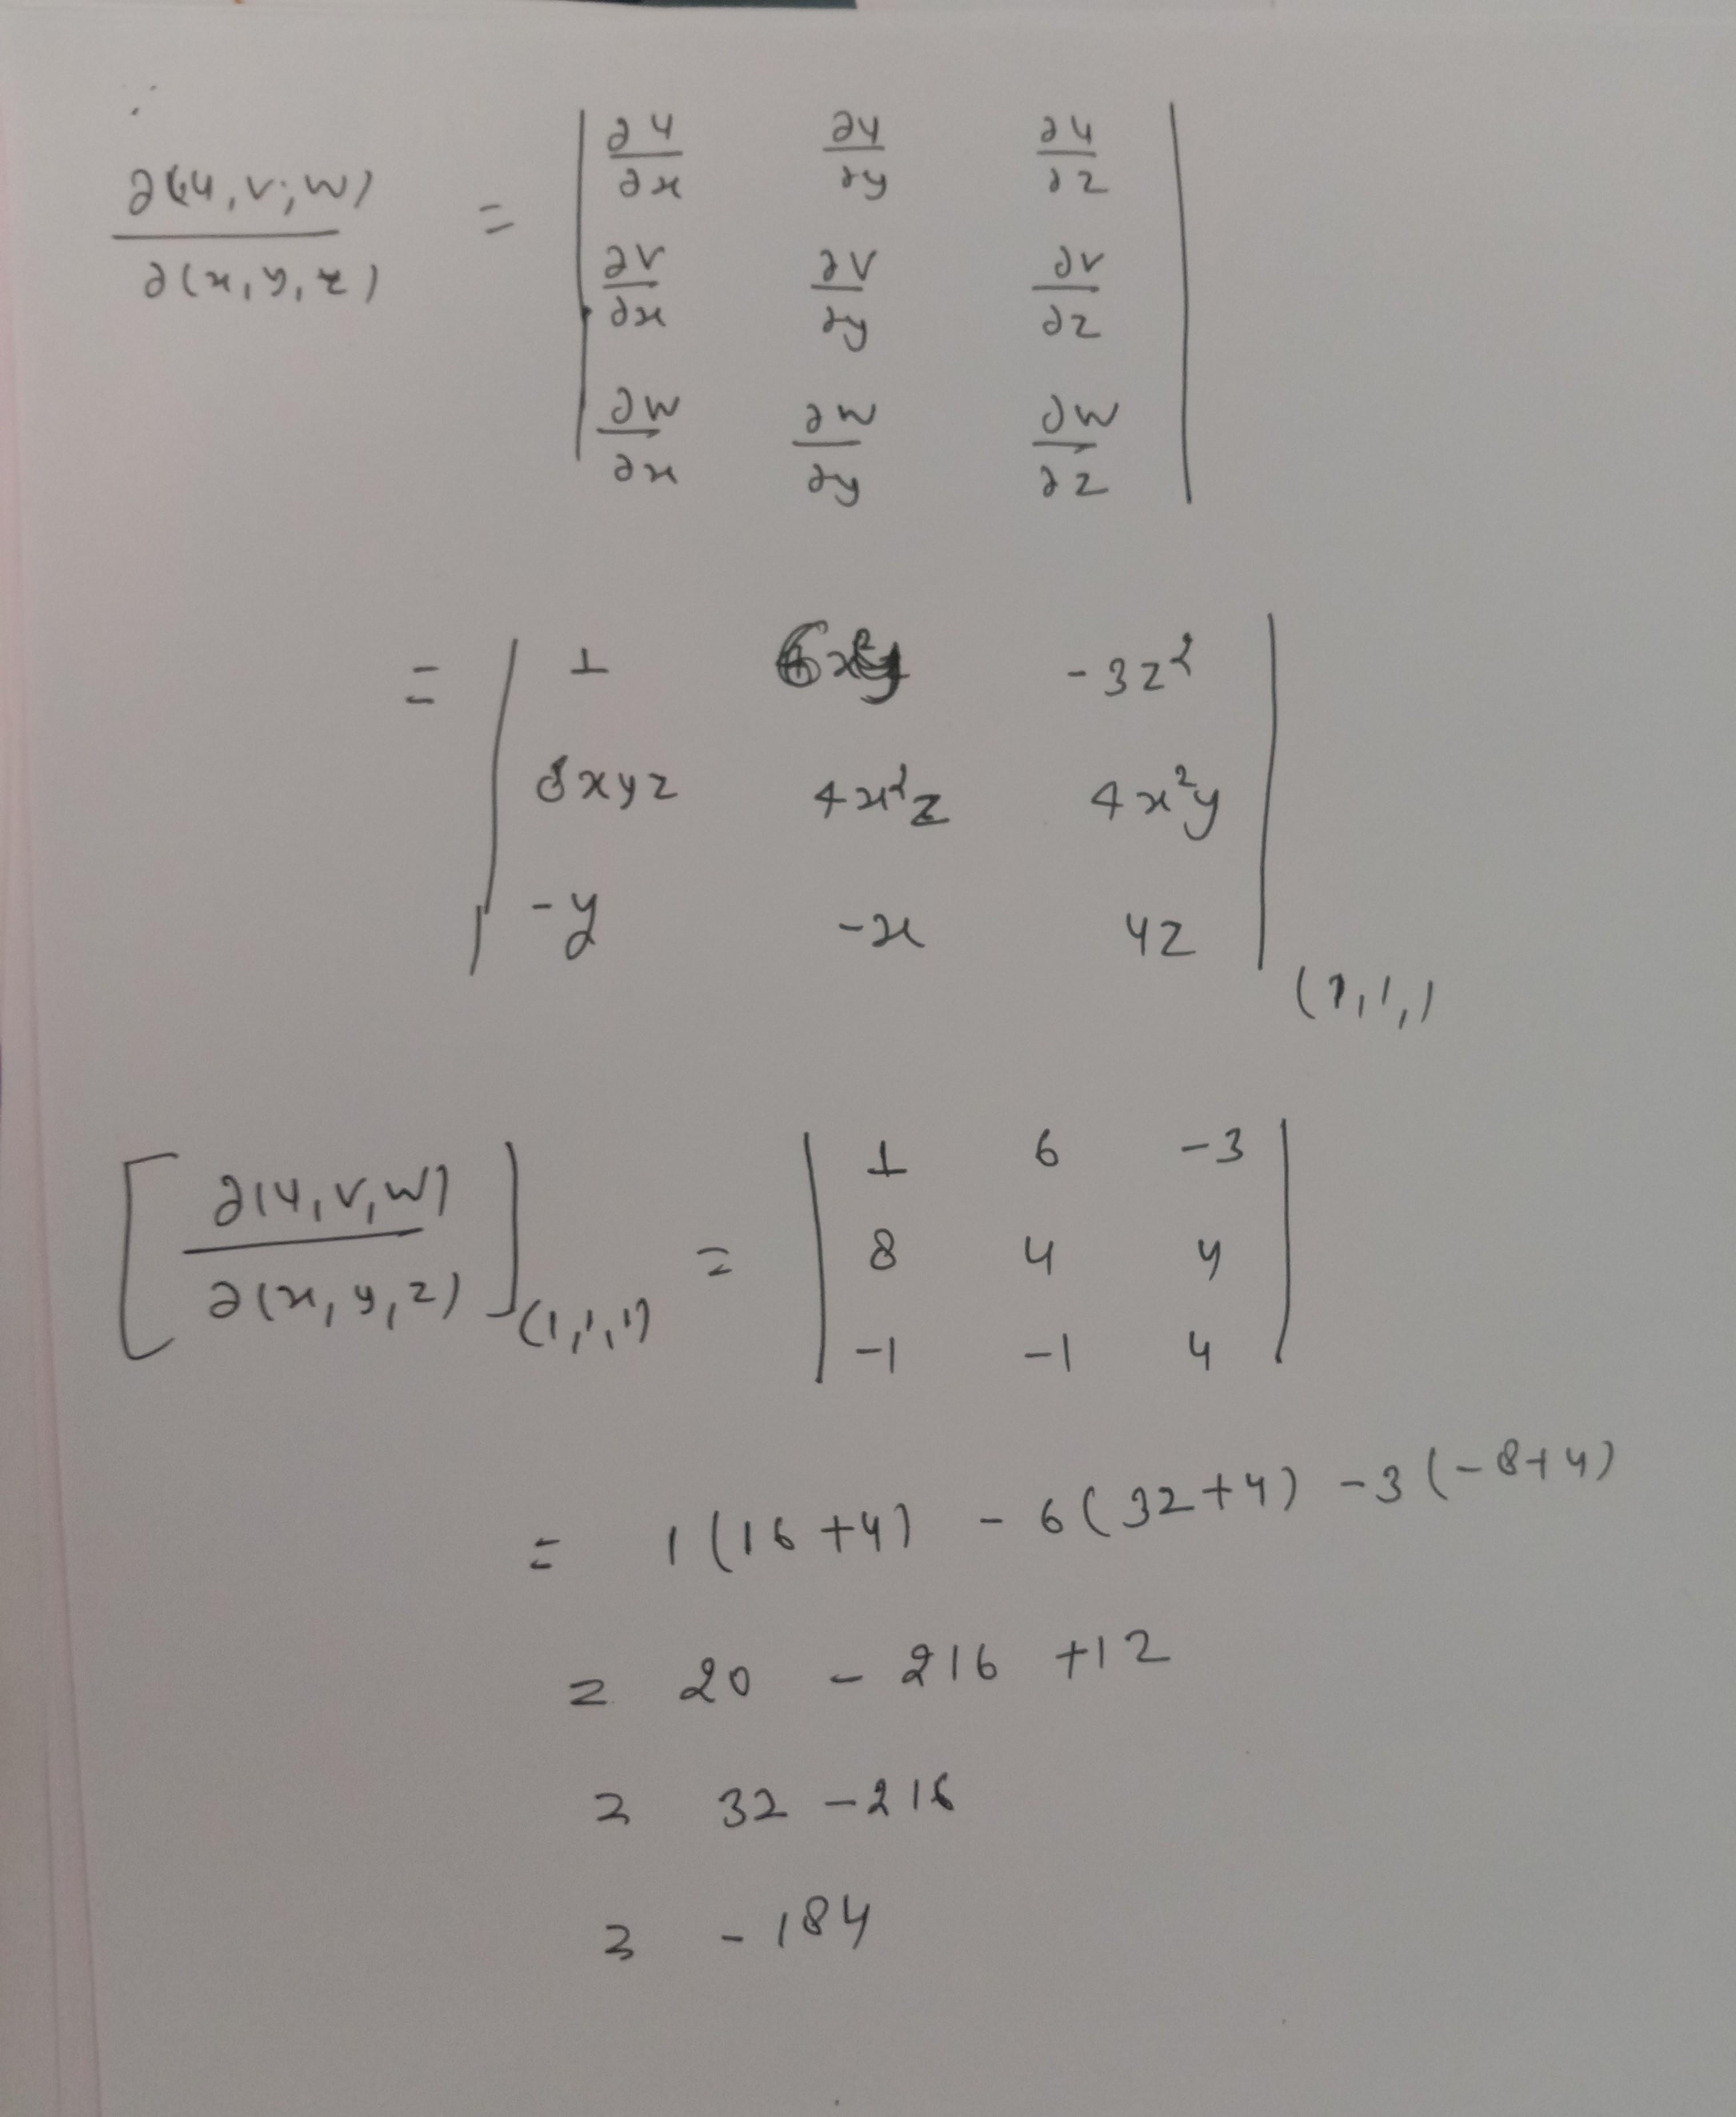 ∂(u,v,w) / ∂(x,y,z) = | ∂u/∂x ∂u/∂y ∂u/∂z |
| ∂v/∂x ∂v/∂y ∂v/∂z |
| ∂w/∂x ∂w/∂y ∂w/∂z |
= | 1 6 -3z² |
| 8xyz 4x²z 4x²y |
| -y -x 4z | (1,1,1
[ ∂(u,v,w) / ∂(x,y,z) ] (1,1,1) = | 1 6 -3 |
| 8 4 4 |
| -1 -1 4 |
= 1(16+4) - 6(32+4) -3(-8+4)
= 20 - 216 +12
= 32 -216
= -184